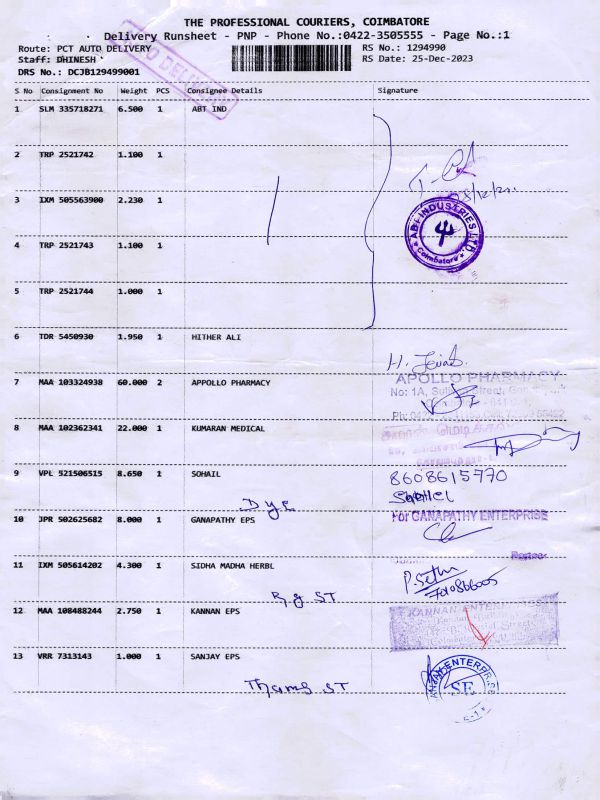 THE PROFESSIONAL COURIERS, COIMBATORE
Delivery Runsheet - PNP - Phone No.:0422-3505555 - Page No.:1
Route: PCT AUTO DELIVERY RS No.: 1294990
Staff: DHINESH RS Date: 25-Dec-2023
DRS No.: DCJB129499001
DELIVE
S No Consignment No Weight PCS Consignee Details Signature
1 SLM 335718271 6.500 1 ABT IND
2 TRP 2521742 1.100 1
3 IXM 505563900 2.230 1
ABT INDUSTRIES LTD
Coimbatore
4 TRP 2521743 1.100 1
5 TRP 2521744 1.000 1
6 TDR 5450930 1.950 1 HITHER ALI
7 MAA 103324938 60.000 2 APPOLLO PHARMACY
APOLLO PHARMACY
No: 1A,
8 MAA 102362341 22.000 1 KUMARAN MEDICAL
9 VPL 521506515 8.650 1 SOHAIL
8608615770
Dye
10 JPR 502625682 8.000 1 GANAPATHY EPS
For GANAPATHY ENTERPRISE
11 IXM 505614202 4.300 1 SIDHA MADHA HERBL
Rg ST
12 MAA 108488244 2.750 1 KANNAN EPS
KANNAN ENTERPRISES
13 VRR 7313143 1.000 1 SANJAY EPS
ENTERPRISE
SE
Thams ST